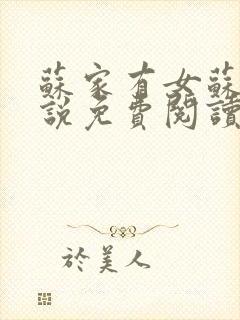 蘇家有女蘇
說免費閱讀
於美人